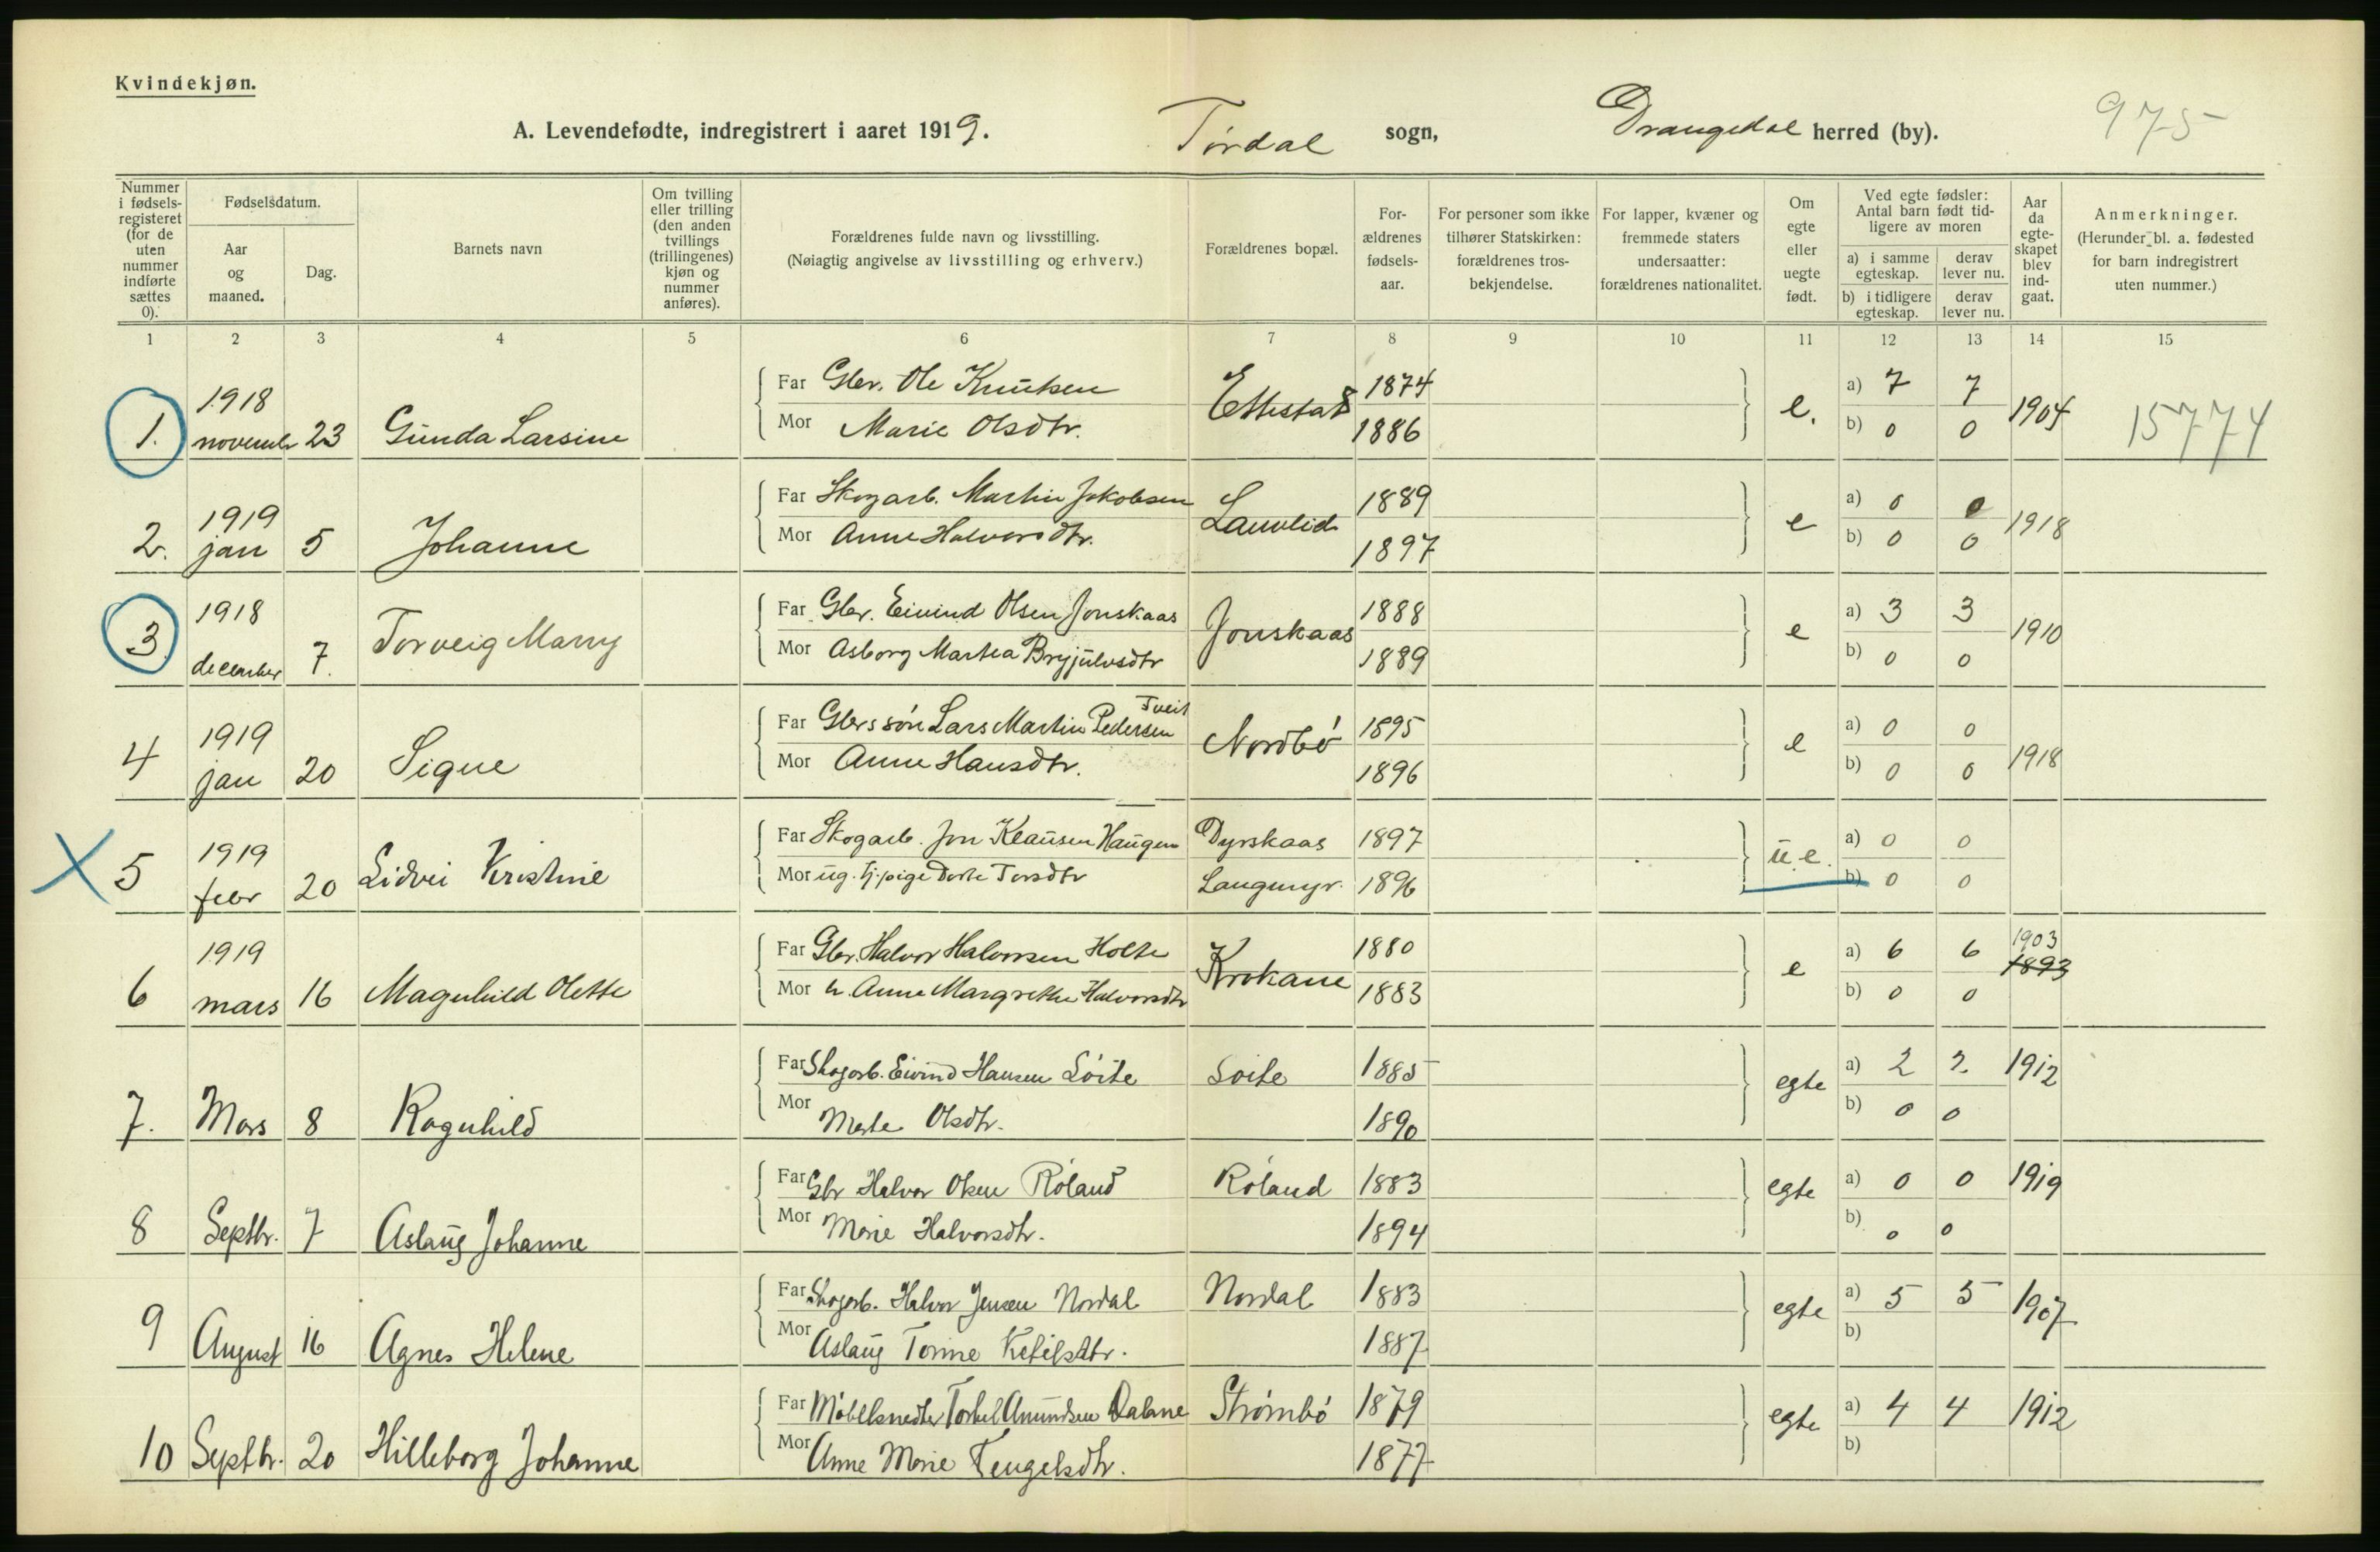 Kvindekjøn.
A. Levendefødte, indregistrert i aaret 1919. Tørdal sogn, Drangedal herred (by). 975
Nummer i fødselsregisteret (for de uten nummer indførte sættes 0).
Fødselsdatum.
Aar og maaned.
Dag.
Barnets navn
Om tvilling eller trilling (den anden tvillings (trillingenes) kjøn og nummer anføres).
Forældrenes fulde navn og livsstilling.
(Nøiagtig angivelse av livsstilling og erhverv.)
Forældrenes bopæl.
Forældrenes fødselsaar.
For personer som ikke tilhører Statskirken: forældrenes trosbekjendelse.
For lapper, kvæner og fremmede staters undersaatter: forældrenes nationalitet.
Om egte eller uegte født.
Ved egte fødsler: Antal barn født tidligere av moren
a) i samme egteskap. derav lever nu.
b) i tidligere egteskap. derav lever nu.
Aar da egteskapet blev indgaat.
Anmerkninger.
(Herunder bl. a. fødested for barn indregistrert uten nummer.)
1 2 3 4 5 6 7 8 9 10 11 12 13 14 15
1. 1918 novembr 23 Gunda Larsine
Far Gbr. Ole Knutsen Ettestad 1874 e. a) 7 7 1904 15774
Mor Marie Olsdtr. 1886 b) 0 0
2. 1919 jan 5 Johanne
Far Skogarb. Martin Jakobsen Lauvlid 1889 e a) 0 0 1918
Mor Anne Halvorsdtr. 1897 b) 0 0
3 1918 december 7. Torveig Marry
Far Gbr. Eivind Olsen Jonskaas Jonskaas 1888 e a) 3 3 1910
Mor Asborg Martea Brynjulvsdtr 1889 b) 0 0
4 1919 jan 20 Signe
Far Gbrs søn Lars Martin Pedersen Tveit Nordbø 1895 e a) 0 0 1918
Mor Anne Hansdtr. 1896 b) 0 0
5 1919 febr 20 Lidvei Kristine
Far Skogarb. Jon Klausen Haugen Dyrskaas 1897 u.e. a) 0 0
Mor ug. tj.pige Dorte Torsdtr Langmyr. 1896 b) 0 0
6 1919 mars 16 Magnhild Olette
Far Gbr. Halvor Halvorsen Holte Krokane 1880 e a) 6 6 1903 1893
Mor h. Anne Margrethe Halvorsdtr 1883 b) 0 0
7. Mars 8 Ragnhild
Far Skogarb. Eivind Hansen Søite Søite 1885 egte a) 2 2 1912
Mor Marte Olsdtr. 1890 b) 0 0
8 Septbr. 7 Aslaug Johanne
Far Gbr Halvor Olsen Røland Røland 1883 egte a) 0 0 1919
Mor Marie Halvorsdtr. 1894 b) 0 0
9 August 16 Agnes Helene
Far Skogarb. Halvor Jensen Nordal Nordal 1883 egte a) 5 5 1907
Mor Aslaug Tomine Ketilsdtr. 1887 b)
10 Septbr. 20 Hilleborg Johanne
Far Møbelsnedker Torkel Amundsen Dalane Strømbø 1879 egte a) 4 4 1912
Mor Anne Marie Tengelsdtr. 1877 b)